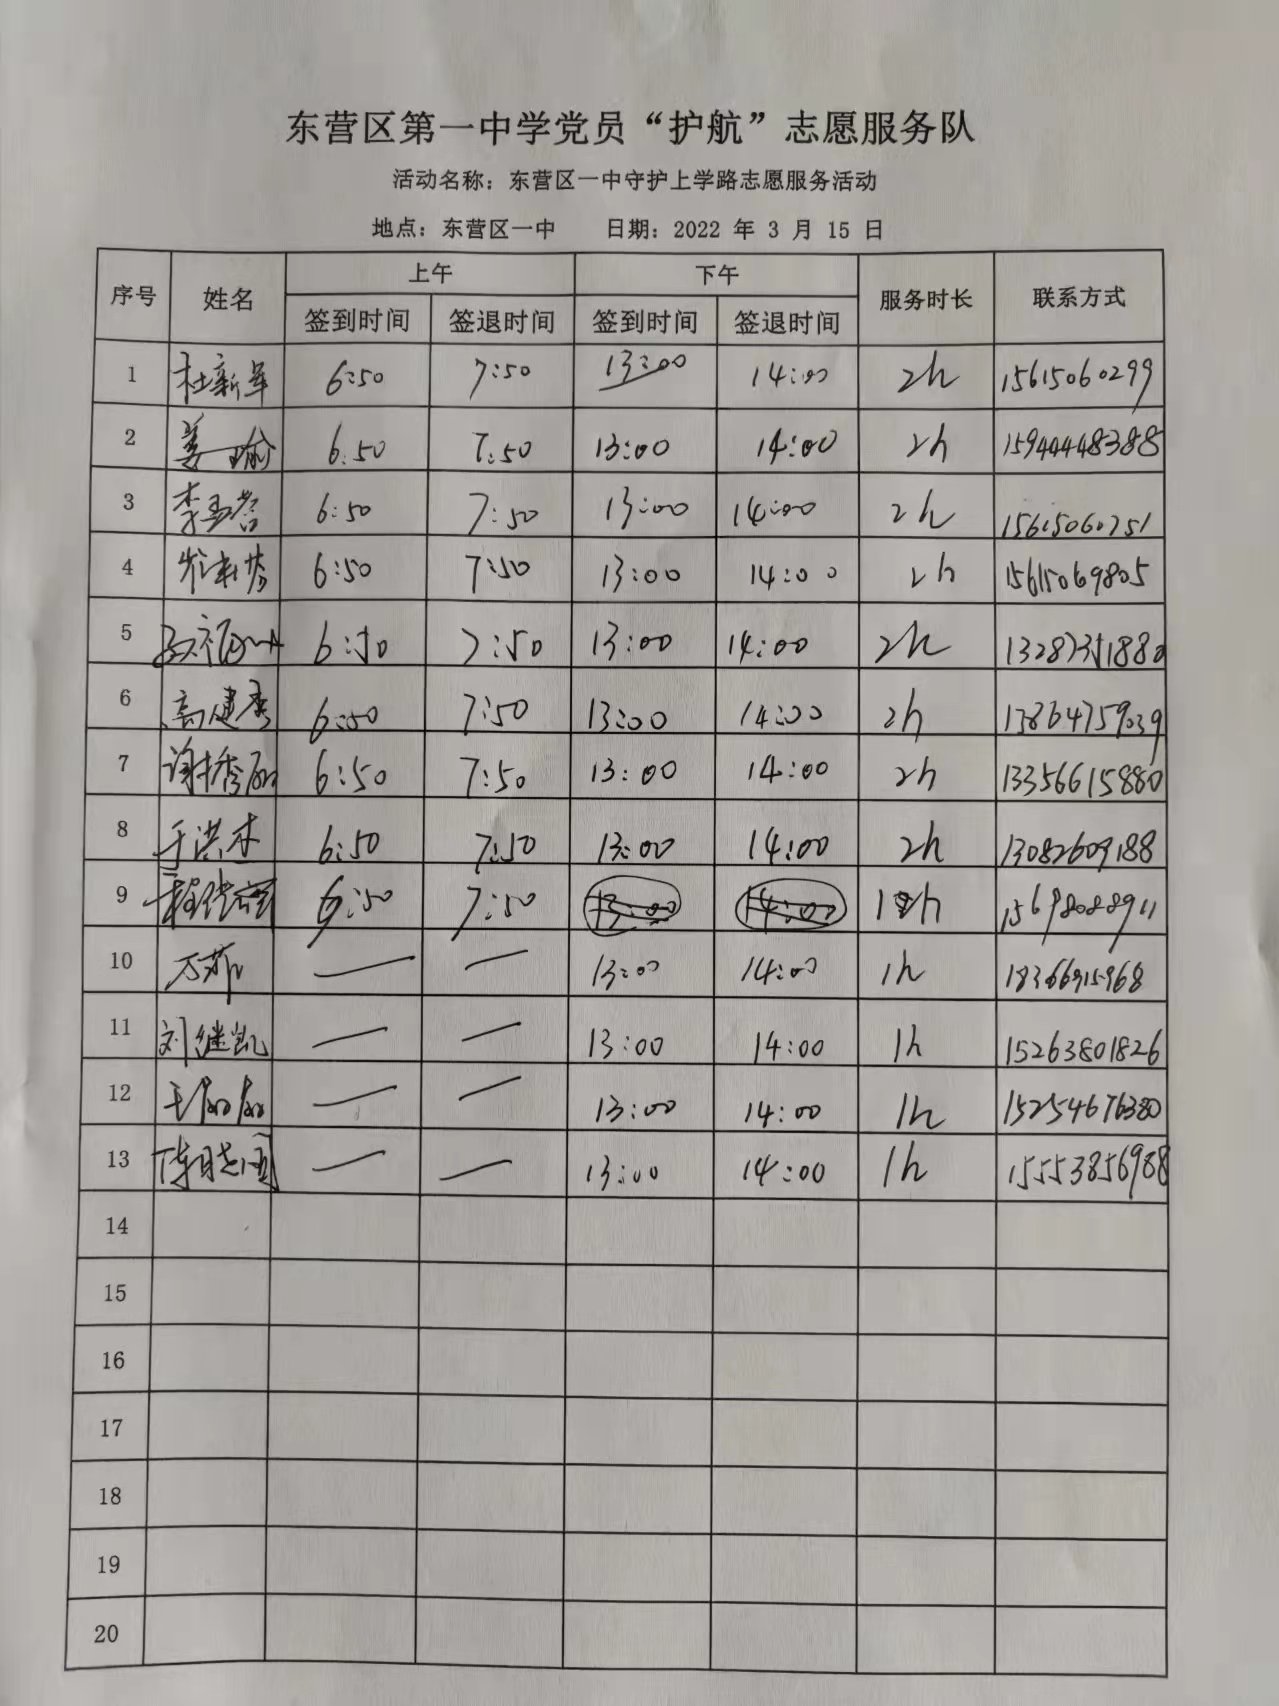 东营区第一中学党员“护航”志愿服务队
活动名称：东营区一中守护上学路志愿服务活动
地点：东营区一中 日期：2022 年 3 月 15 日
序号 姓名 上午 下午 服务时长 联系方式
签到时间 签退时间 签到时间 签退时间
1 杜新军 6:50 7:50 13:00 14:00 2h 15615060299
2 姜瑜 6:50 7:50 13:00 14:00 2h 15944448388
3 李孟营 6:50 7:50 13:00 14:00 2h 15615060751
4 6:50 7:50 13:00 14:00 2h 15615069805
5 6:50 7:50 13:00 14:00 2h
6 高建秀 6:50 7:50 13:00 14:00 2h 13864759039
7 谢秀丽 6:50 7:50 13:00 14:00 2h 13356615880
8 于洪木 6:50 7:50 13:00 14:00 2h 13082609188
9 6:50 7:50 13:00 14:00 1h 15698088911
10 万菲 — — 13:00 14:00 1h 18366915968
11 刘继凯 — — 13:00 14:00 1h 15263801826
12 王丽丽 — — 13:00 14:00 1h 15254676380
13 陈晓国 — — 13:00 14:00 1h 15553856988
14
15
16
17
18
19
20